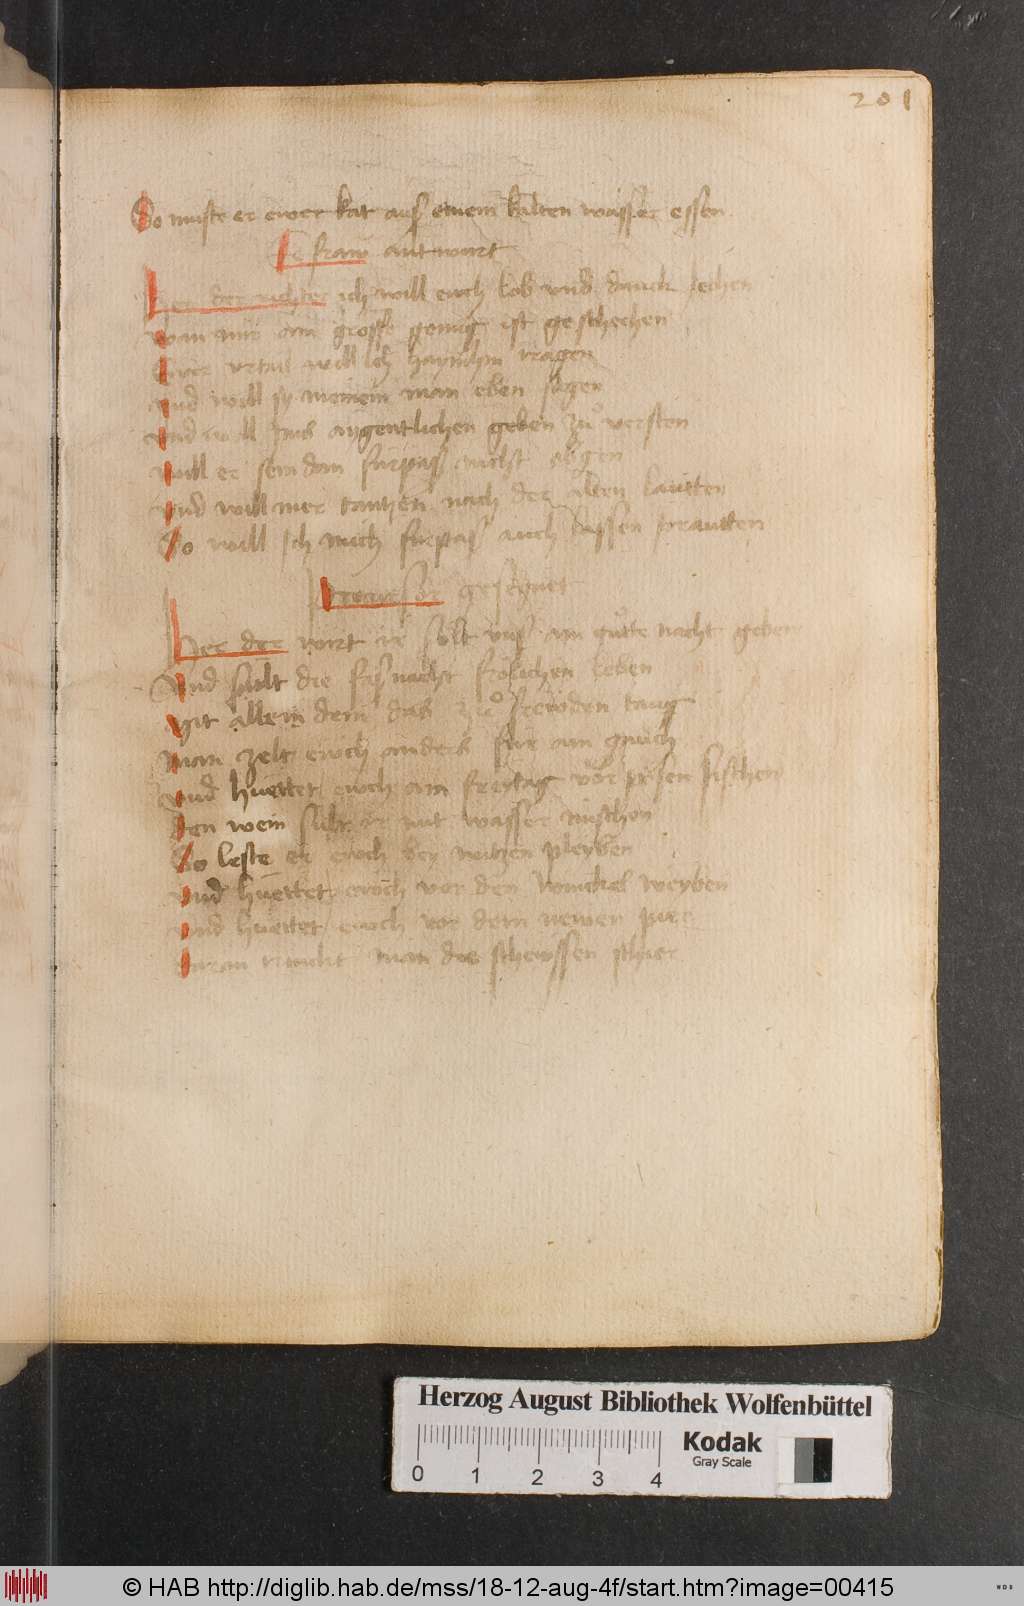 201
So muste er ewer kat auß einem kalten wasser essen
Die fraw antwurt
Her der richter ich will euch lob vnd danck jechen
wan mir am grosse genug ist geschechen
Ewer vrtail will ich haym hin tragen
vnd will sy meinem man eben sagen
vnd will Ims aygentlichen geben zu versten
will er sein dan furpas nicht
vnd will mer tantzen nach der alten lautten
So will ich mich furpas auch lassen prautten
Precursor gesegnet
Her der wirt ir sült vns ain gutte nacht geben
Vnd sullt die fasnacht frölichen leben
Mit allem dem das zu frewden taug
man zelt euch anders für ain gauch
vnd huettet euch am freytag vor pösen fischen
den wein sult ir mit wasser mischen
So leste er euch bey witzen pleyben
vnd huettet euch vor den winckel weyben
vnd huettet euch vor dem newen pier
daran man das scheyssen schier
Herzog August Bibliothek Wolfenbüttel
Kodak
Gray Scale
0 1 2 3 4
© HAB http://diglib.hab.de/mss/18-12-aug-4f/start.htm?image=00415